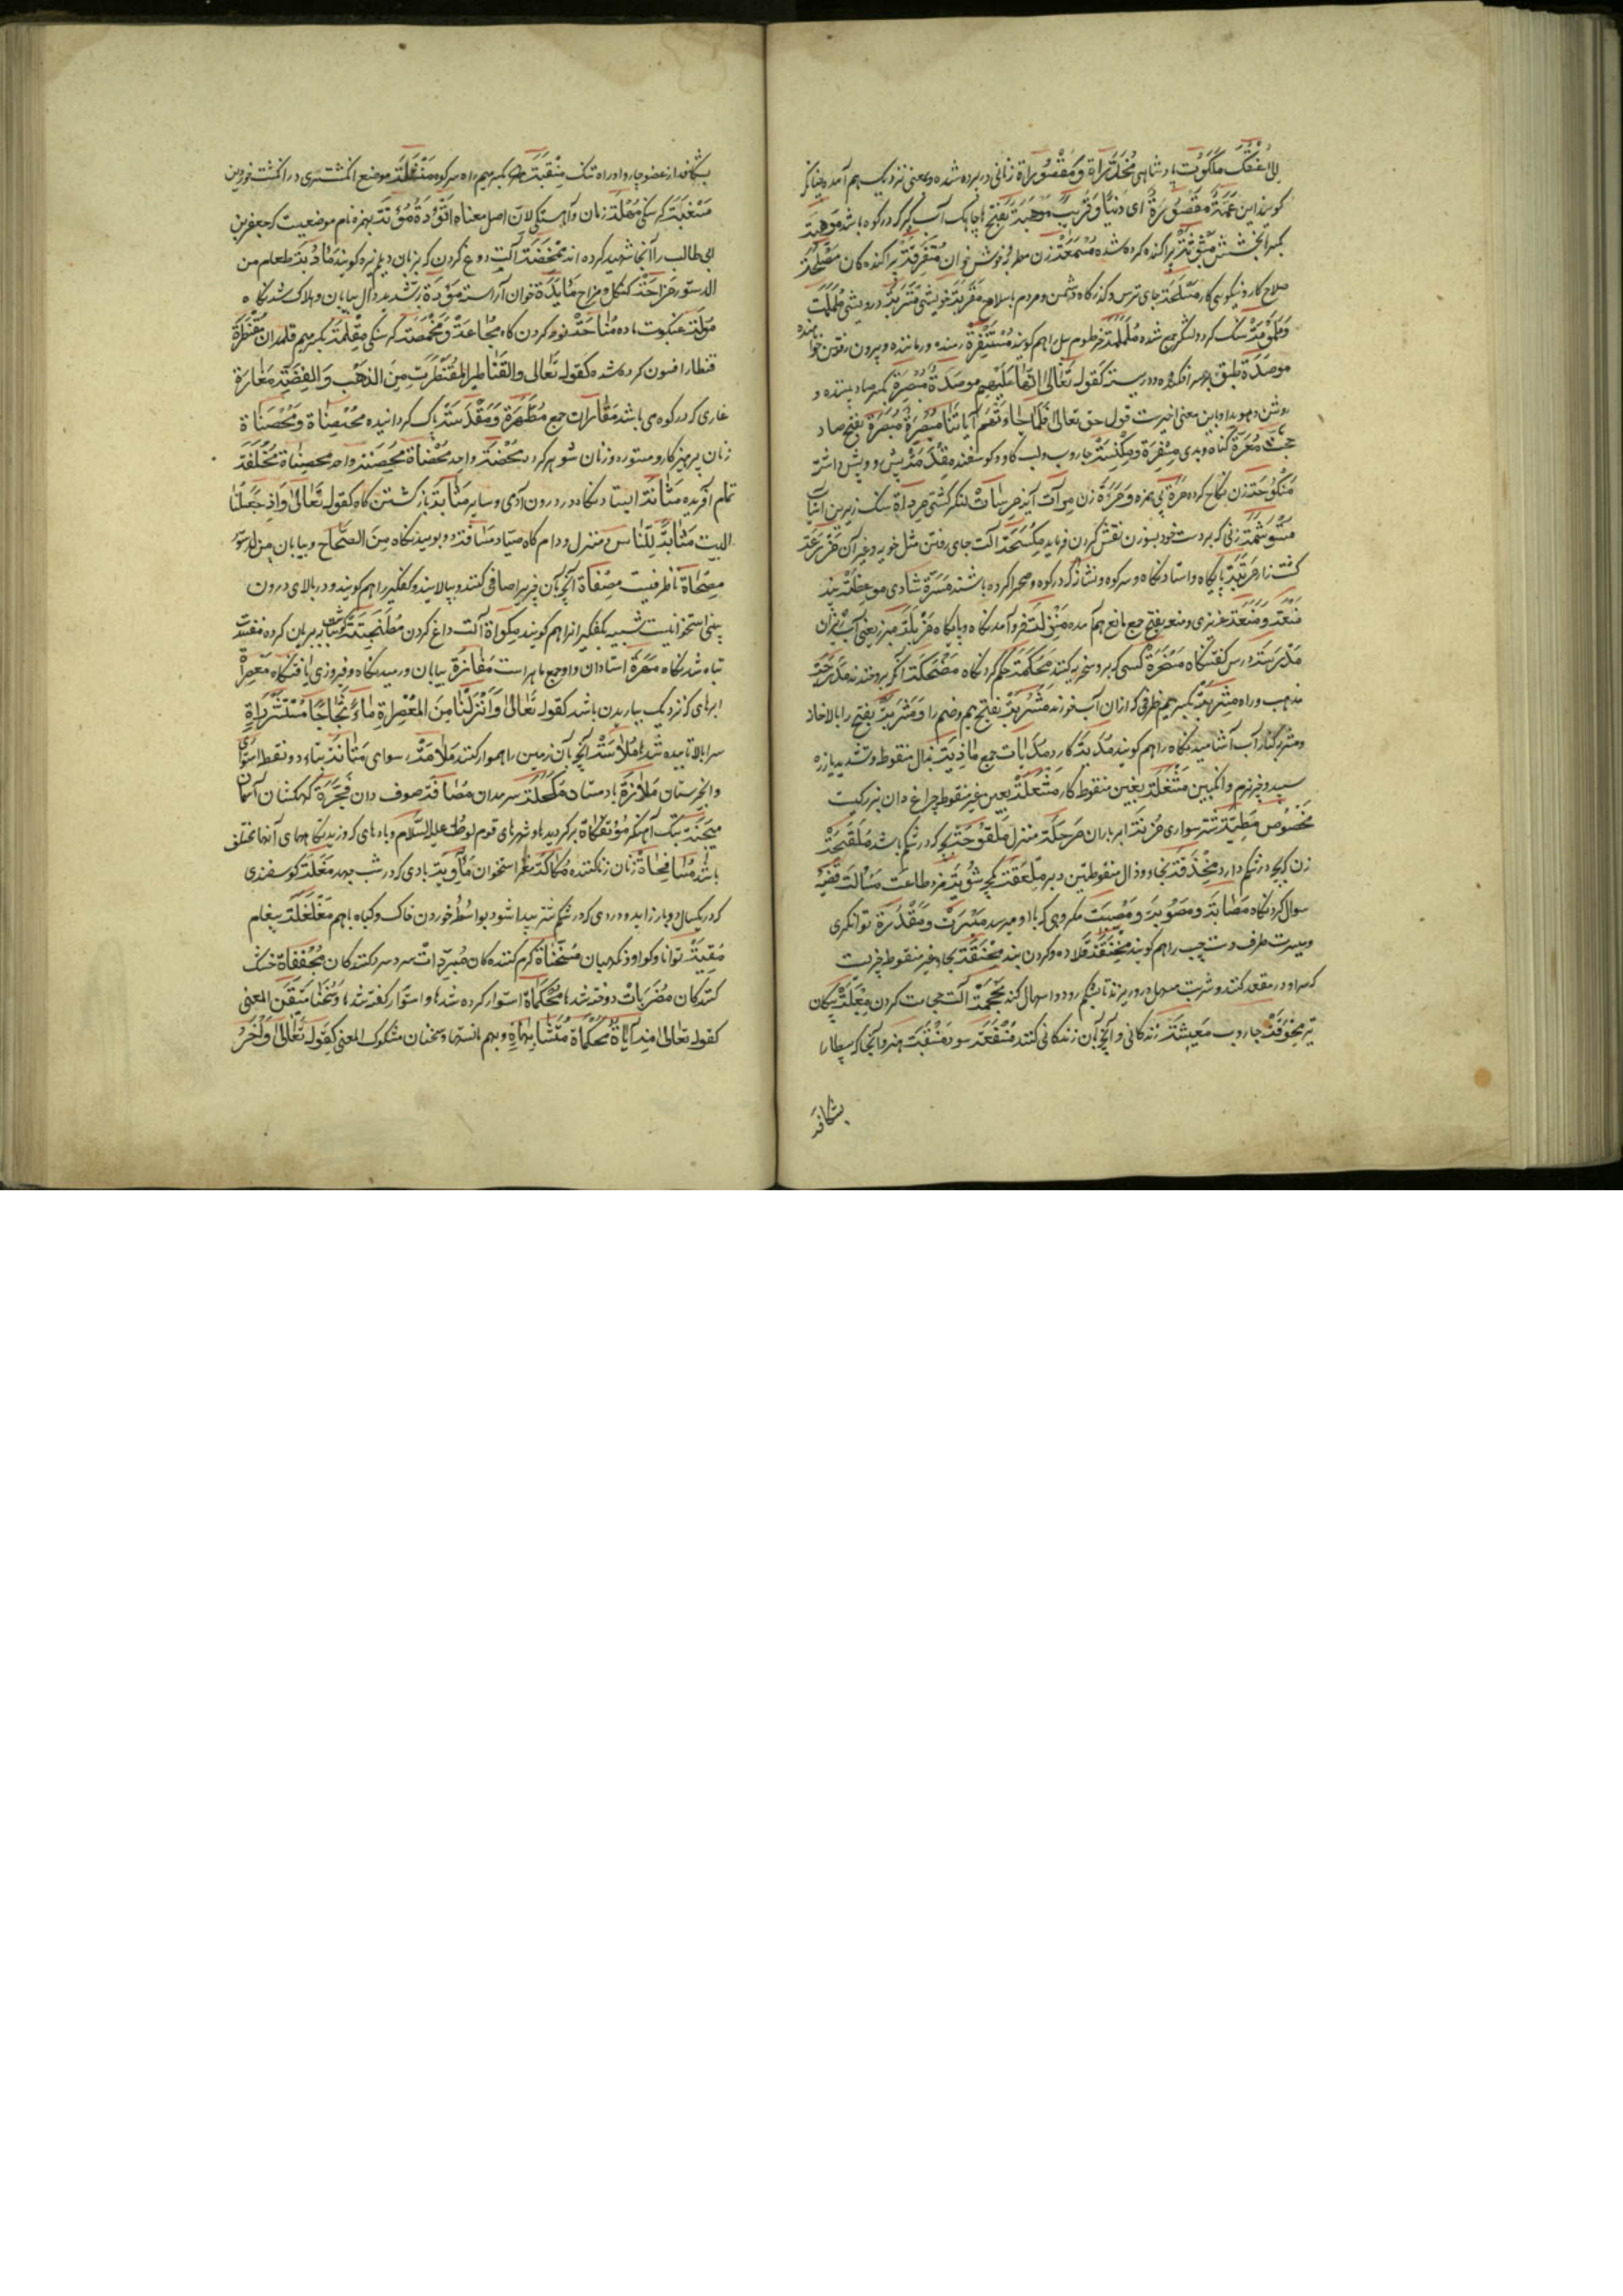 گویند این عمه مقصورة ای دنیا و قریب موهبة بفتح ها چاهک آب گیر که در کوه باشد موهبة
بکسر ها بخشش متفرقة پراکنده کرده شده زن مطربه خوش خوان متفرقة پراکنده کان مصلحة
صلاح کار و نیکویی کار مسلحة جای ترس و گذرگاه دشمن و مردم با سلاح مقربة خویشی متربة درویشی ململمة
سنگ گرد و لشکر جمع شده ململمة خرطوم پیل را هم گویند مستنفرة رمنده و رماننده و بیرون رفتن خواهنده
موصدة طبق بر سر افکنده و در بسته کقوله تعالی انها علیهم موصدة مبصرة بکسر صاد بیننده و
روشن و هویدا و باین معنی اخیرست قول حق تعالی فلما جاءتهم آیاتنا مبصرة مبصرة بفتح صاد
حجت معرة گناه و بدی و مکنسة جاروب و لب گاو و گوسفند مقدمة پیش و پیش داشته
منکوحة زن نکاح کرده مرة بی همزه و مروة زن مرآت آینه مرسات لنگر کشتی مرداة سنگ زیرین آسیاب
مستوشمة زنی که بر دست خود بسوزن نقش کردن فرماید مکسحة آلت جای رفتن مثل خویه و غیر آن مزرعة
کشت زار مرتبة پایگاه و استادنگاه و سر کوه و نشانه که در کوه و صحرا کرده باشند مسرة شادی موعظة پند
منعة و منعة عزیزی و منعه بفتح جمع مانع هم آمده منزلة فرو آمدنگاه و پایگاه مزبلة مبرز یعنی آب ریزان
مدرسة درس گفتنگاه مسخرة کسی که برو سخریه کنند محکمة حکم کردنگاه مضحکة آنکه برو خندند
مذهب و راه مشربة بکسر میم ظرفی که از آن آب خورند مشربة بفتح میم و ضم را و مشربة بفتح را بالاخانه
و مشربه کنار آب آشامیدنگاه را هم گویند مدیة کارد مدیات جمع ماذیة بذال منقوطه و تشدید یا زره
سپید و چیز نرم و انگبین مشغلة بغین منقوطه کار مشعلة بعین غیر منقوطه چراغ دان بزرگیست
مخصوص مطیة شتر سواری مزنة ابر باران مرحلة منزل ملقوحة بچه که در شکم باشد ملقحة
زن که بچه در شکم دارد مخذفة بخا و ذال منقوطتین دبر ملعقة کمچه مثوبة مزد طاعت مسألة قضیه
سوال کردنگاه مصابة و مصوبة و مصیبة مکروهی که بآدمی رسد میسرة و مقدرة توانگری
و میسرة طرف دست چپ را هم گویند مخنقة قلاده و گردن بند محنقة بحاء غیر منقوطه چیزیست
که سر او در مقعد کنند و شربت مسهل درو ریزند تا بشکم رود و اسهال کند محجمة آلت حجامت کردن معبلة پیکان
تیر مخوقة جاروب معیشة زندگانی و آنچه بآن زندگانی کنند منفعة سود منقبة هنر و آنجا که بیطار را
بشکافد
بشکافد از عضو چاروا و راه تنگ منقبة بکسر میم راه سر کوه منقلة موضع انگشتری در انگشت خوردین
مسغبة گرسنگی مهلة زمان و آهستگی لان اصل معناه اتؤدة مؤتة بهمزه نام موضعیست که جعفر بن
ابی طالب را آنجا شهید کرده اند ممخضة آلت دوغ کردن که بزبان دیگر نیره گویند مأدبة طعام من
الدستور مزاحة کشکل و مزاح مایدة خوان آراسته مؤدة بتشدید دال بیابان و هلاک شدنگاه
مولة عنکبوت ماده مناحة نوحه کردن گاه مجاعة و مخمصة گرسنگی مقلمة بکسر میم قلمدان مقنطرة
قنطار افسون کرده شده کقوله تعالی والقناطیر المقنطرة من الذهب والفضة مغارة
غاری که در کوه می باشد مغارات جمع مطهرة و مقدسة پاک گردانیده محصنات و محصنات
زنان پرهیزکار و مستوره و زنان شوهر کرده محصنة واحد محصنات محصنة واحد محصنات مخلقة
تمام آفریده مثانة ایستادنگاه در درون آدمی و سایر مثابة بازگشتن گاه کقوله تعالی واذ جعلنا
البیت مثابة للناس و منزل و دام گاه صیاد مسافة دوری و بوییدنگاه من الصحاح و بیابان من الدستور
مصحاة ظرفیست مصفاة آنچه بآن چیزی را صافی کنند و بپالایند و کفگیر را هم گویند و در بالای درون
بینی استخوانیست شبیه بکفگیر انرا هم گویند مکواة آلت داغ کردن مطنجنة بریان کرده
تباه شدنگاه مهرة استادان و او جمع ماهر است مفازة بیابان و رسیدنگاه و فیروزی یافتنگاه معصرات
ابرهای که نزدیک بباریدن باشد کقوله تعالی وانزلنا من المعصرات ماء ثجاجا مستشزرات
سر بالا تابیده شدها ملاسة آنچه بآن زمین را هموار کنند ملامة رسوایی متانة بتاء دو نقطه استواری
و انجیرستان ملازة بادمستاد مکحلة سرمه دان مصافة صوف دان مجرة کهکشان آسمان
میجنة تبک آهنگر مؤتفکات برگردیدها و شهرهای قوم لوط علیه السلام و بادهای که وزیدنگاههای آنها مختلف
باشد مسافحات زنان زناکننده مکاکة مغز استخوان مأوبة بادی که در شب جهد مغلة گوسفندی
که در یکسال دو بار زاید و دردی که در شکم شتر پیدا شود بواسطه خوردن خاک و گیاه باهم مغلغلة پیغام
مقیتة توانا و گواه و نگهبان مسخنات گرم کننده کان مبردات سرد سرد کننده کان مجففات خشک
کننده کان مضربات دوخته شدها محکمات استوار کرده شدها و استوار گفته شدها و سخنها متیقن المعنی
کقوله تعالی منه آیات محکمات متشابهات و بهم مانستها و سخنان مشکوک المعنی کقوله تعالی واخر